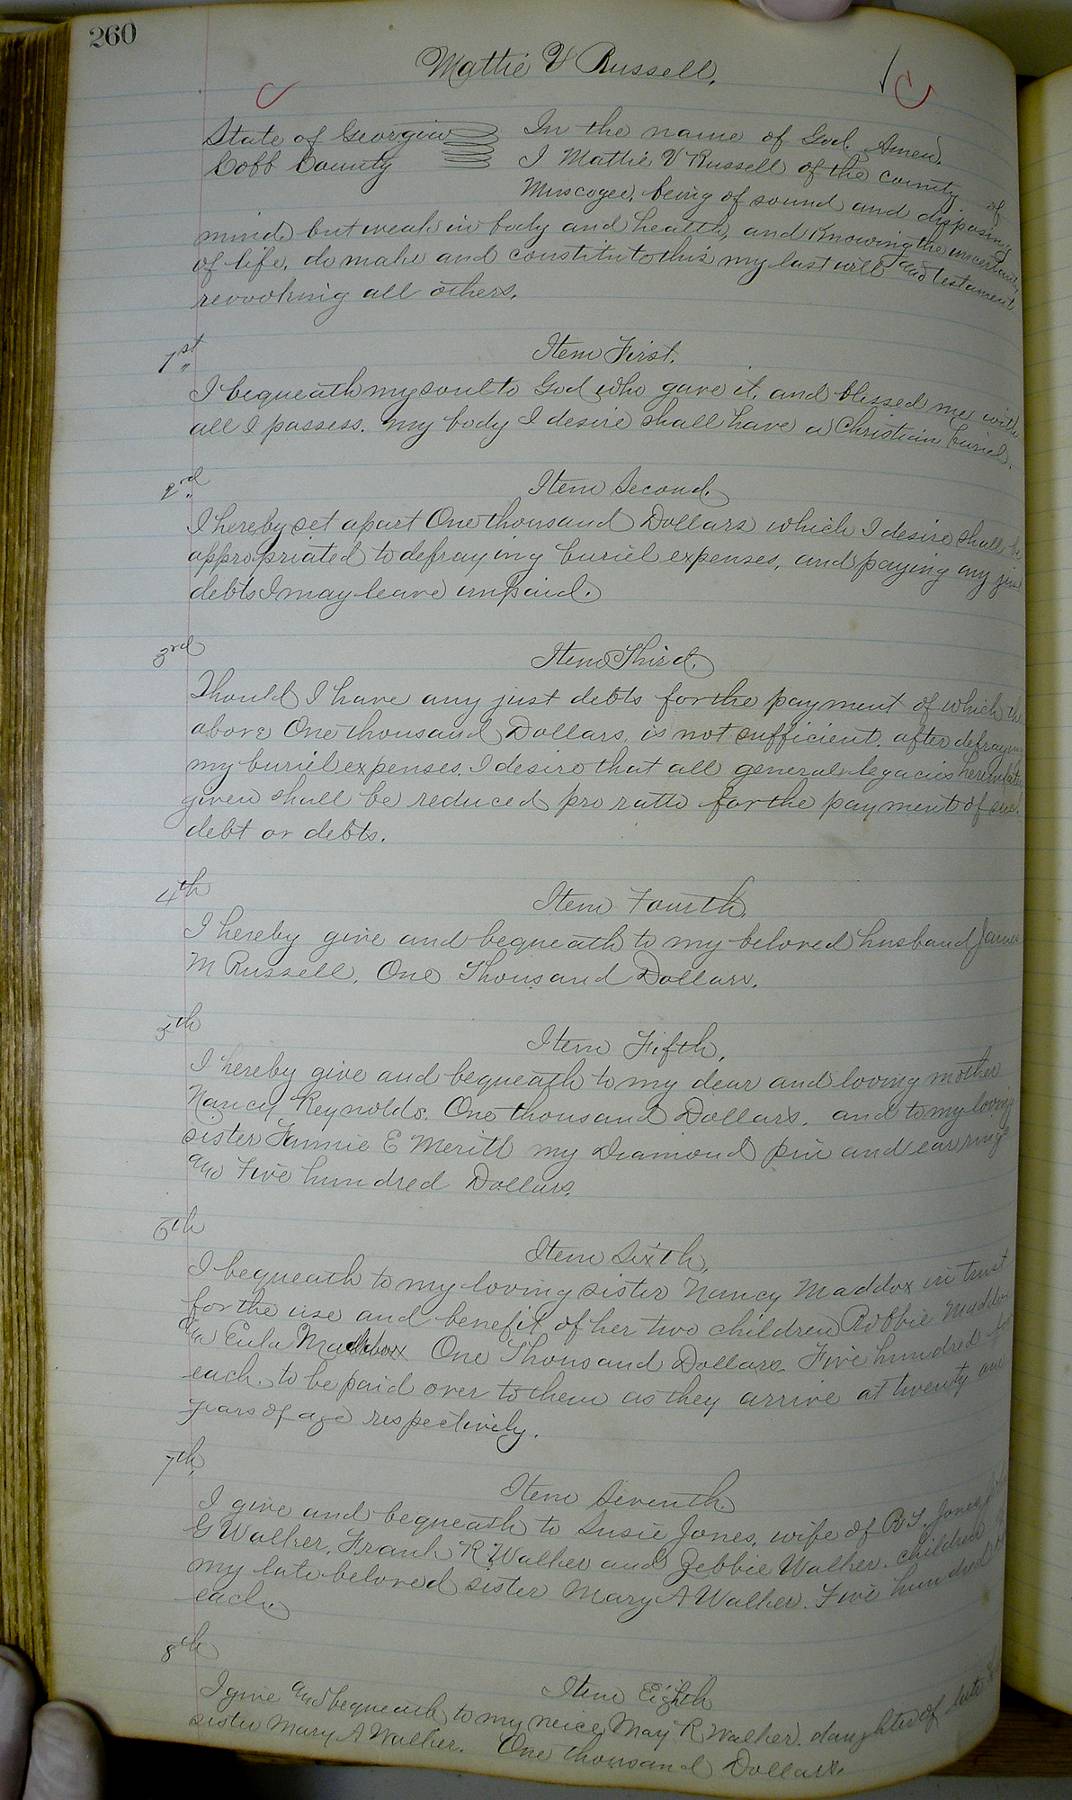 260
Mattie V Russell,
State of Georgia
Cobb County
In the name of God. Amen.
I Mattie V Russell of the county of
Muscogee, being of sound and disposing
mind but weak in body and health, and Knowing the uncertainty
of life, do make and constitute this my last will and testament
revoking all others.
1st
Item First.
I bequeath my soul to God who gave it, and blessed me with
all I possess. My body I desire shall have a Christian buriel.
2nd
Item Second.
I hereby set apart One thousand Dollars which I desire shall be
appropriated to defraying buriel expenses, and paying any just
debts I may leave unpaid.
3rd
Item Third.
Should I have any just debts for the payment of which the
above One thousand Dollars is not sufficient. after defraying
my buriel expenses, I desire that all general legacies herein
given shall be reduced pro ratto for the payment of such
debt or debts.
4th
Item Fourth.
I hereby give and bequeath to my beloved husband James
M Russell, One Thousand Dollars.
5th
Item Fifth.
I hereby give and bequeath to my dear and loving mother
Nancy Reynolds. One thousand Dollars. and to my loving
sister Fannie E Meritt my Diamond pin and earrings
and Five hundred Dollars.
6th
Item Sixth.
I bequeath to my loving sister Nancy Maddox in trust
for the use and benefit of her two children Robbie Maddox
and Eula Maddox One Thousand Dollars. Five hundred for
each. to be paid over to them as they arrive at twenty one
years of age respectively.
7th
Item Seventh.
I give and bequeath to Susie Jones, wife of
G Walker, Frank R Walker and Zebbie Walker. children
my late beloved sister Mary A Walker. Five hundred
each.
8th
Item Eighth
I give and bequeath to my neice May R Walker. daughter of late
sister Mary A Walker. One thousand Dollars.